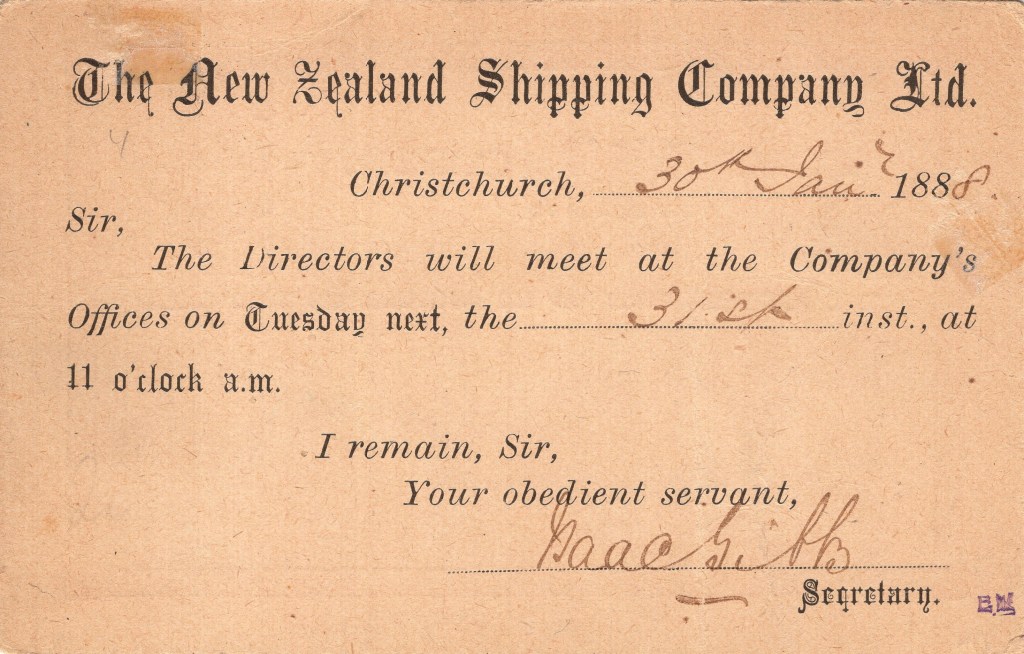 The New Zealand Shipping Company Ltd.
4
Christchurch, 30th Jany 1888.
Sir,
The Directors will meet at the Company's
Offices on Tuesday next, the 31st inst., at
11 o'clock a.m.
I remain, Sir,
Your obedient servant,
Isaac Gibbs
Secretary.